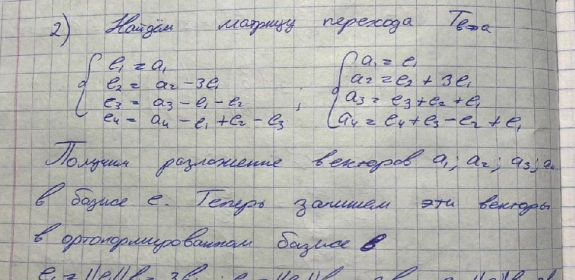 2) Найдём матрицу перехода T в→a
e₁ = a₁
e₂ = a₂ - 3e₁
e₃ = a₃ - e₁ - e₂
e₄ = a₄ - e₁ + e₂ - e₃
;
a₁ = e₁
a₂ = e₂ + 3e₁
a₃ = e₃ + e₂ + e₁
a₄ = e₄ + e₃ - e₂ + e₁
Получим разложение векторов a₁; a₂; a₃; a₄
в базисе e. Теперь запишем эти векторы
в ортонормированном базисе в